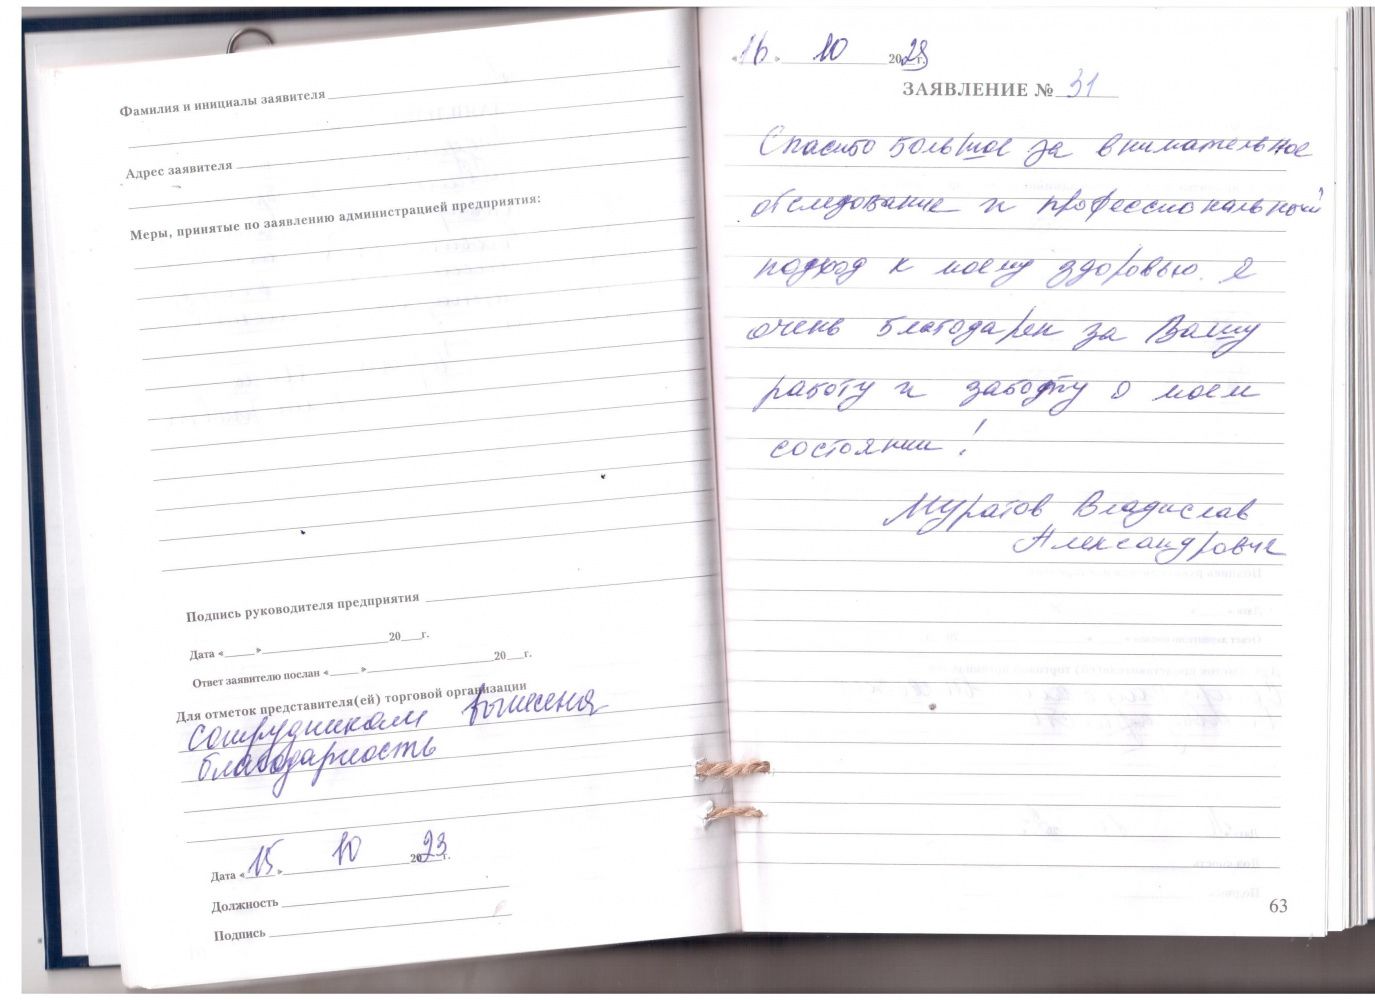 Фамилия и инициалы заявителя
Адрес заявителя
Меры, принятые по заявлению администрацией предприятия:
Подпись руководителя предприятия
Дата « » 20 г.
Ответ заявителю послан « » 20 г.
Для отметок представителя(ей) торговой организации
сотрудникам вынесена
благодарность
Дата « 15 » 10 2023 г.
Должность
Подпись
« 16 » 10 2023 г.
ЗАЯВЛЕНИЕ № 31
Спасибо большое за внимательное
обследование и профессиональный
подход к моему здоровью. Я
очень благодарен за Вашу
работу и заботу о моем
состоянии!
Муратов Владислав
Александрович
63